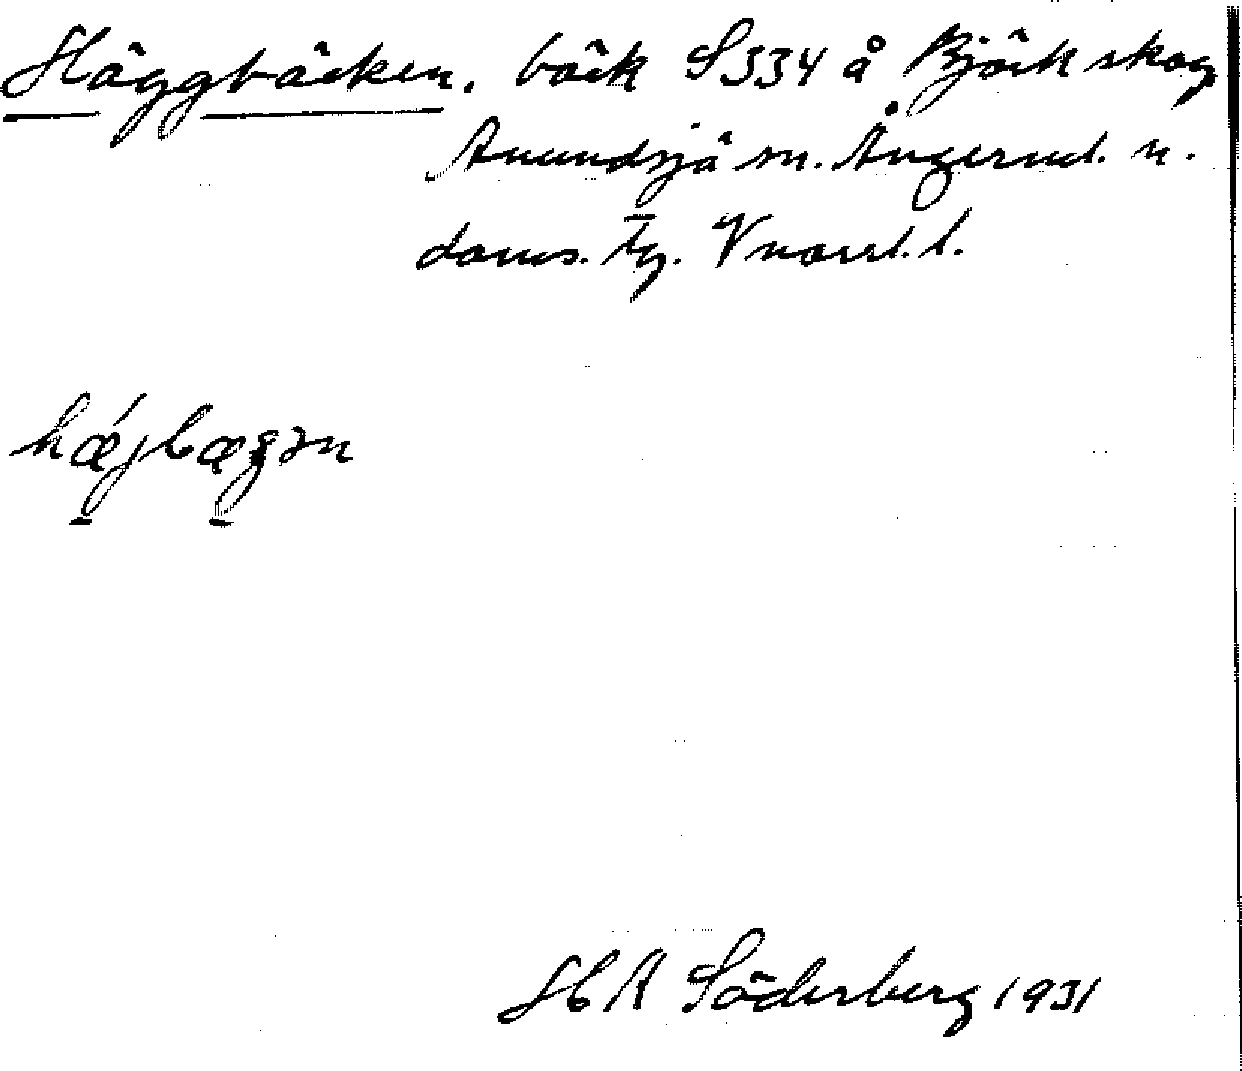 Häggbäcken. bäck S334 å Björkskog
Anundsjö sn. Ångerml. n.
doms. tg. Vnorrl. l.
hǽjbægən
H A Söderberg 1931